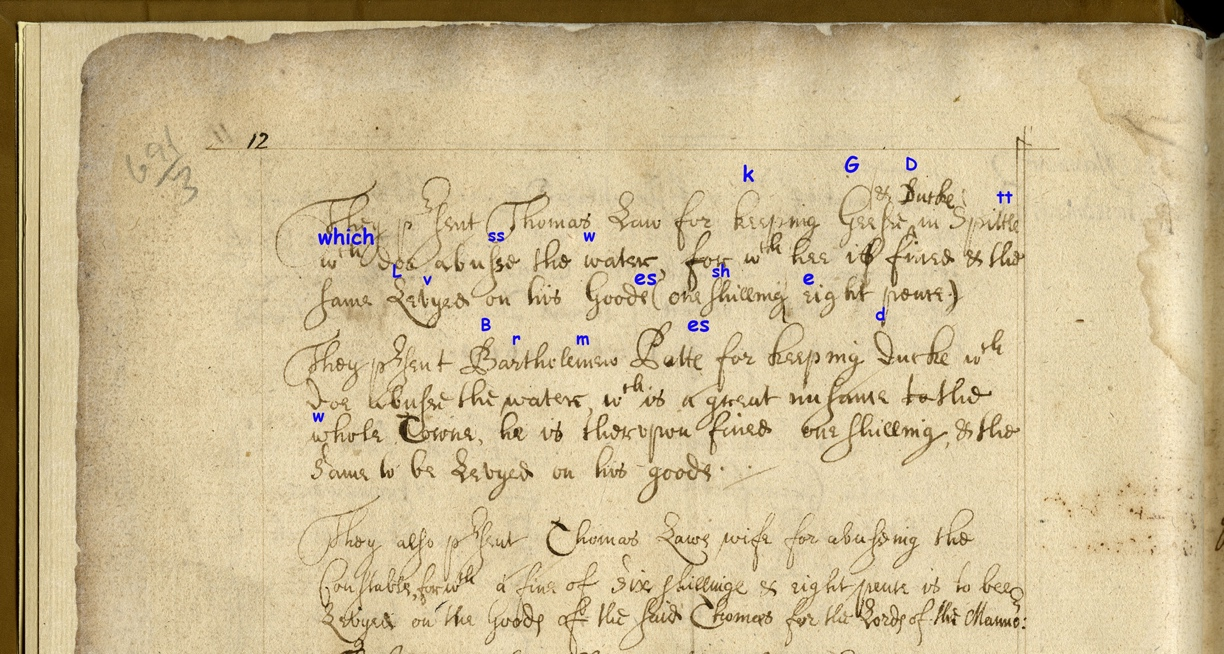 691/3
11
12
k G D
& Ducke
tt
They psent Thomas Law for keeping Geese in Spittle
which ss w
wch doe abusse the water, for wch hee is fined & the
L v es sh e
same Levyed on his Goodes (one shilling eight pence)
B r m es d
They psent Bartholemew Patte for keeping ducke wch
doe abusse the water, wch is a great nusance to the
w
whole Towne, he is therevpon fined one shilling, & the
same to be Levyed on his goods.
They also psent Thomas Laws wife for abuseing the
Constable, for wch a fine of six shillinge & eight pence is to bee
Levyed on the Goods of the said Thomas for the Lords of the Manno: